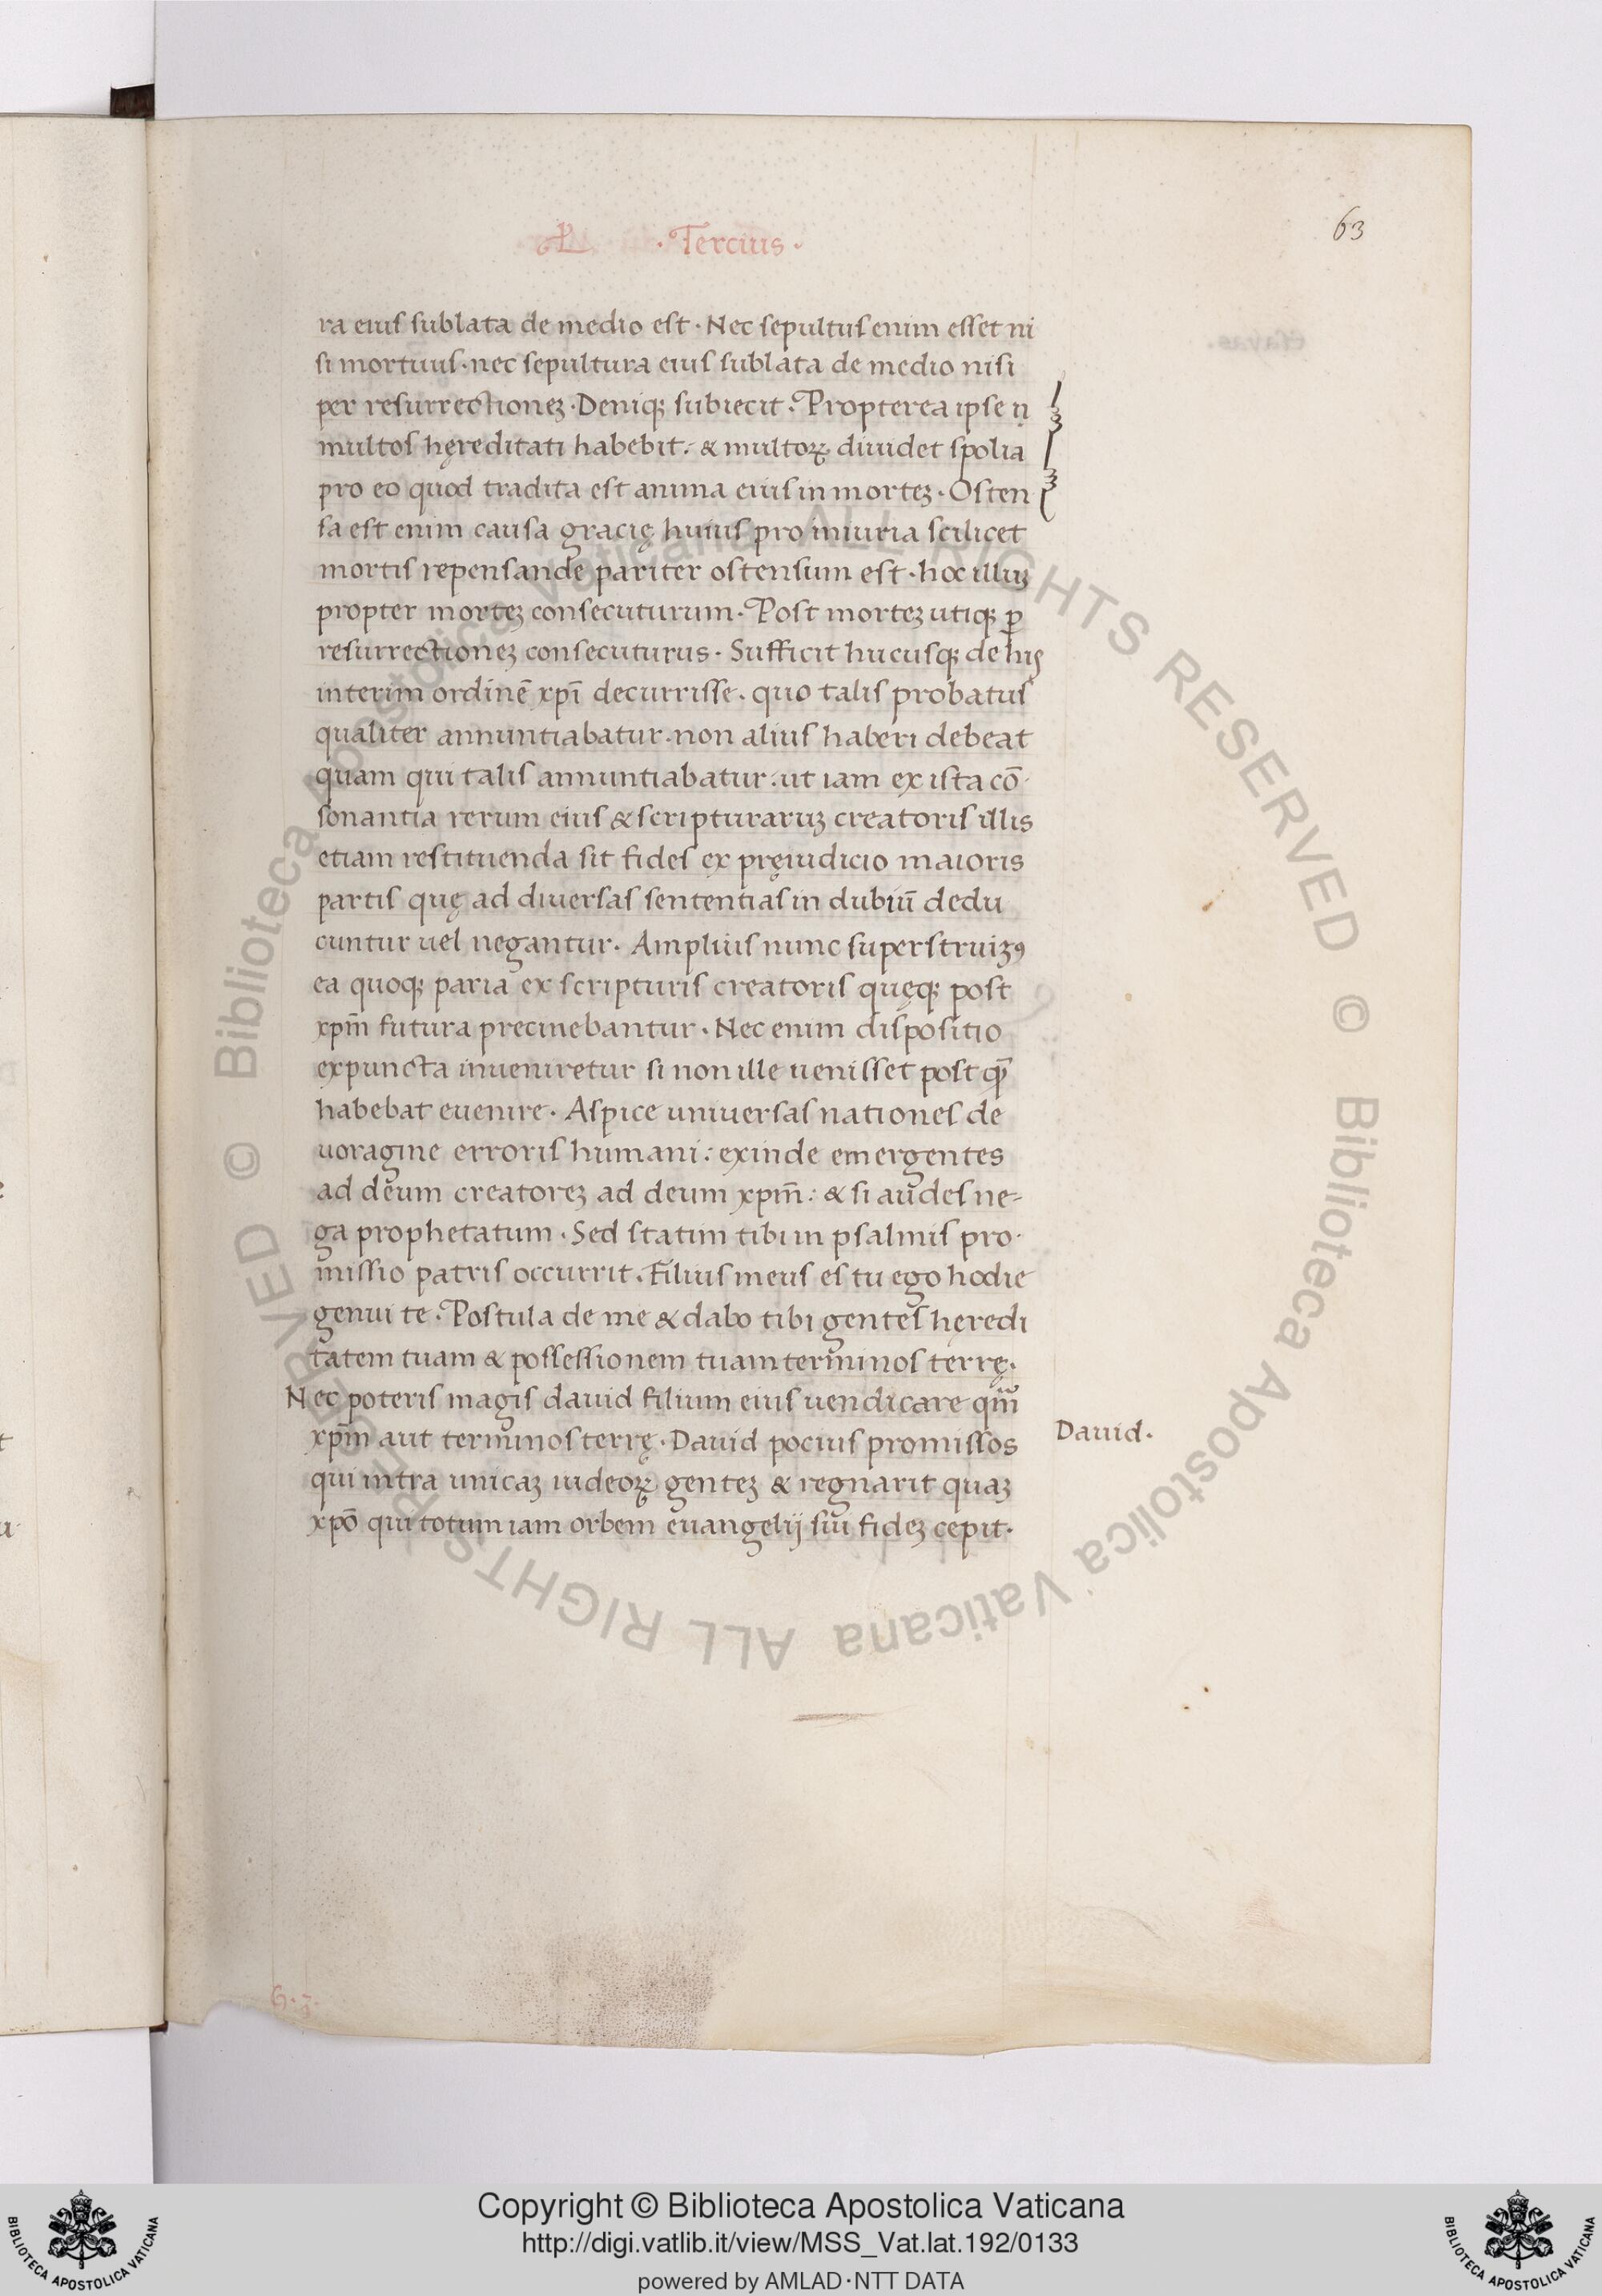 L · Tercius ·
63
ra eius sublata de medio est · Nec sepultus enim esset ni
si mortuus · nec sepultura eius sublata de medio nisi
per resurrectioneꝫ · Deniqꝫ subiecit · Propterea ipse
multos hęreditati habebit · & multoꝝ diuidet spolia
pro eo quod tradita est anima eius in morteꝫ · Osten
sa est enim causa gracię huius pro iniuria scilicet
mortis repensande pariter ostensum est · hoc illuꝫ
propter morteꝫ consecuturum · Post morteꝫ utiqꝫ ꝑ
resurrectioneꝫ consecuturus · Sufficit hucusqꝫ de hijs
interim ordinē xp̄i decurrisse · quo talis probatus
qualiter annuntiabatur · non alius haberi debeat
quam qui talis annuntiabatur · ut iam ex ista cō-
sonantia rerum eius & scripturaruꝫ creatoris illis
etiam restituenda sit fides ex pręiudicio maioris
partis quę ad diuersas sententias in dubiū dedu
cuntur uel negantur · Amplius nunc superstruiꝫꝰ
ea quoqꝫ paria ex scripturis creatoris quęqꝫ post
xpm̄ futura precinebantur · Nec enim dispositio
expuncta inueniretur si non ille uenisset post q̄
habebat euenire · Aspice universas nationes de
uoragine erroris humani : exinde emergentes
ad deum creatoreꝫ ad deum xpm̄ : & si audes ne-
ga prophetatum · Sed statim tibi in psalmis pro-
missio patris occurrit · Filius meus es tu ego hodie
genui te · Postula de me & dabo tibi gentes hęredi
tatem tuam & possessionem tuam terminos terrę ·
Nec poteris magis dauid filium eius uendicare qm̄
xpm̄ aut terminos terrę · Dauid pocius promissos
qui intra unicaꝫ iudeoꝝ genteꝫ & regnarit quaꝫ
xpō qui totum iam orbem euangelij sui fideꝫ cepit ·
Dauid ·
G · 3 ·
Copyright © Biblioteca Apostolica Vaticana
http://digi.vatlib.it/view/MSS_Vat.lat.192/0133
powered by AMLAD·NTT DATA
BIBLIOTECA APOSTOLICA VATICANA
BIBLIOTECA APOSTOLICA VATICANA
© Biblioteca Apostolica Vaticana ALL RIGHTS RESERVED © Biblioteca Apostolica Vaticana ALL RIGHTS RESERVED